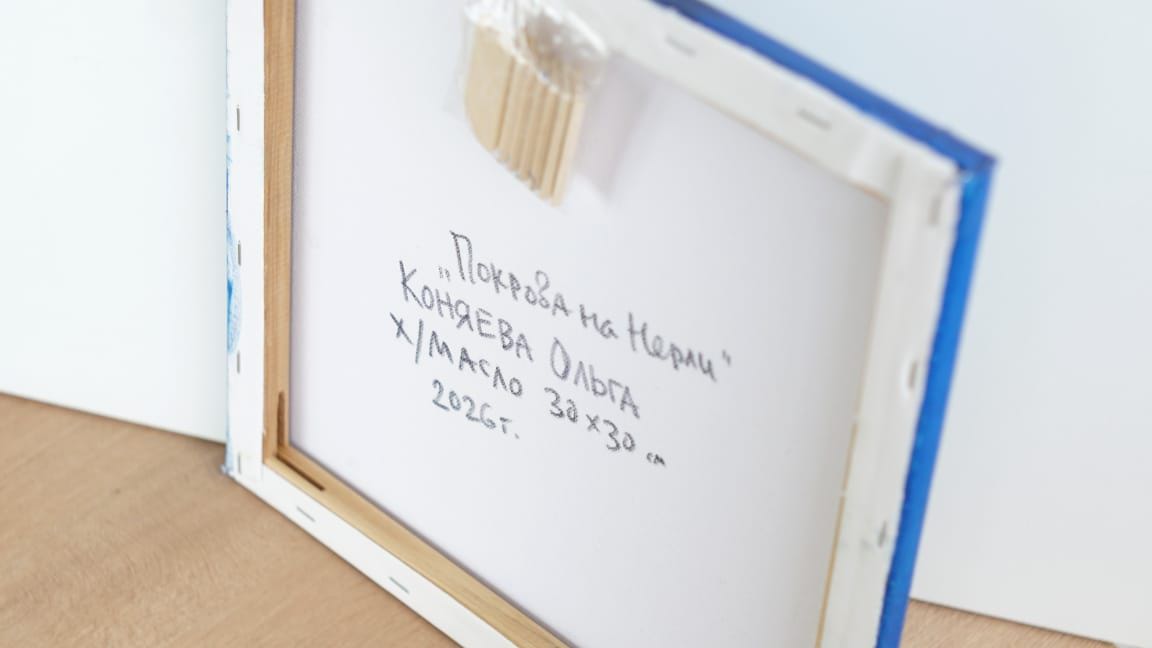 „Покрова на Нерли"
Коняева Ольга
х/масло 30х30 см
2026г.